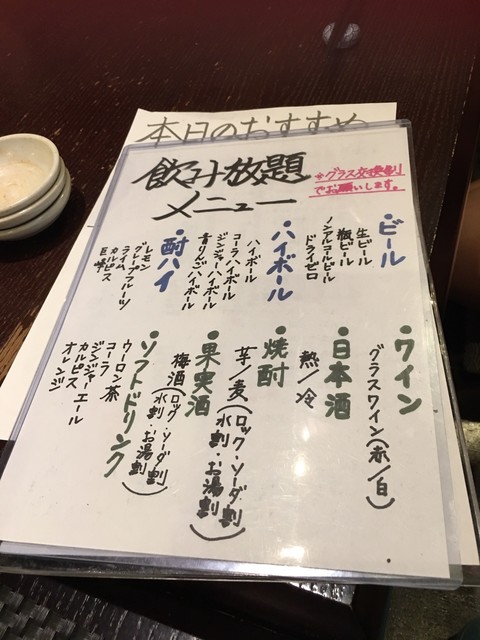 本日のおすすめ
飲み放題
メニュー
※グラス交換制
でお願いします。
・ビール
生ビール
瓶ビール
ノンアルコールビール
ドライゼロ
・ハイボール
ハイボール
コーラハイボール
ジンジャーハイボール
青りんごハイボール
・酎ハイ
レモン
グレープフルーツ
ライム
カルピス
巨峰
・ワイン
グラスワイン(赤/白)
・日本酒
熱/冷
・焼酎
芋/麦(ロック・ソーダ割
水割・お湯割)
・果実酒
梅酒(ロック・ソーダ割
水割・お湯割)
・ソフトドリンク
ウーロン茶
コーラ
ジンジャーエール
カルピス
オレンジ